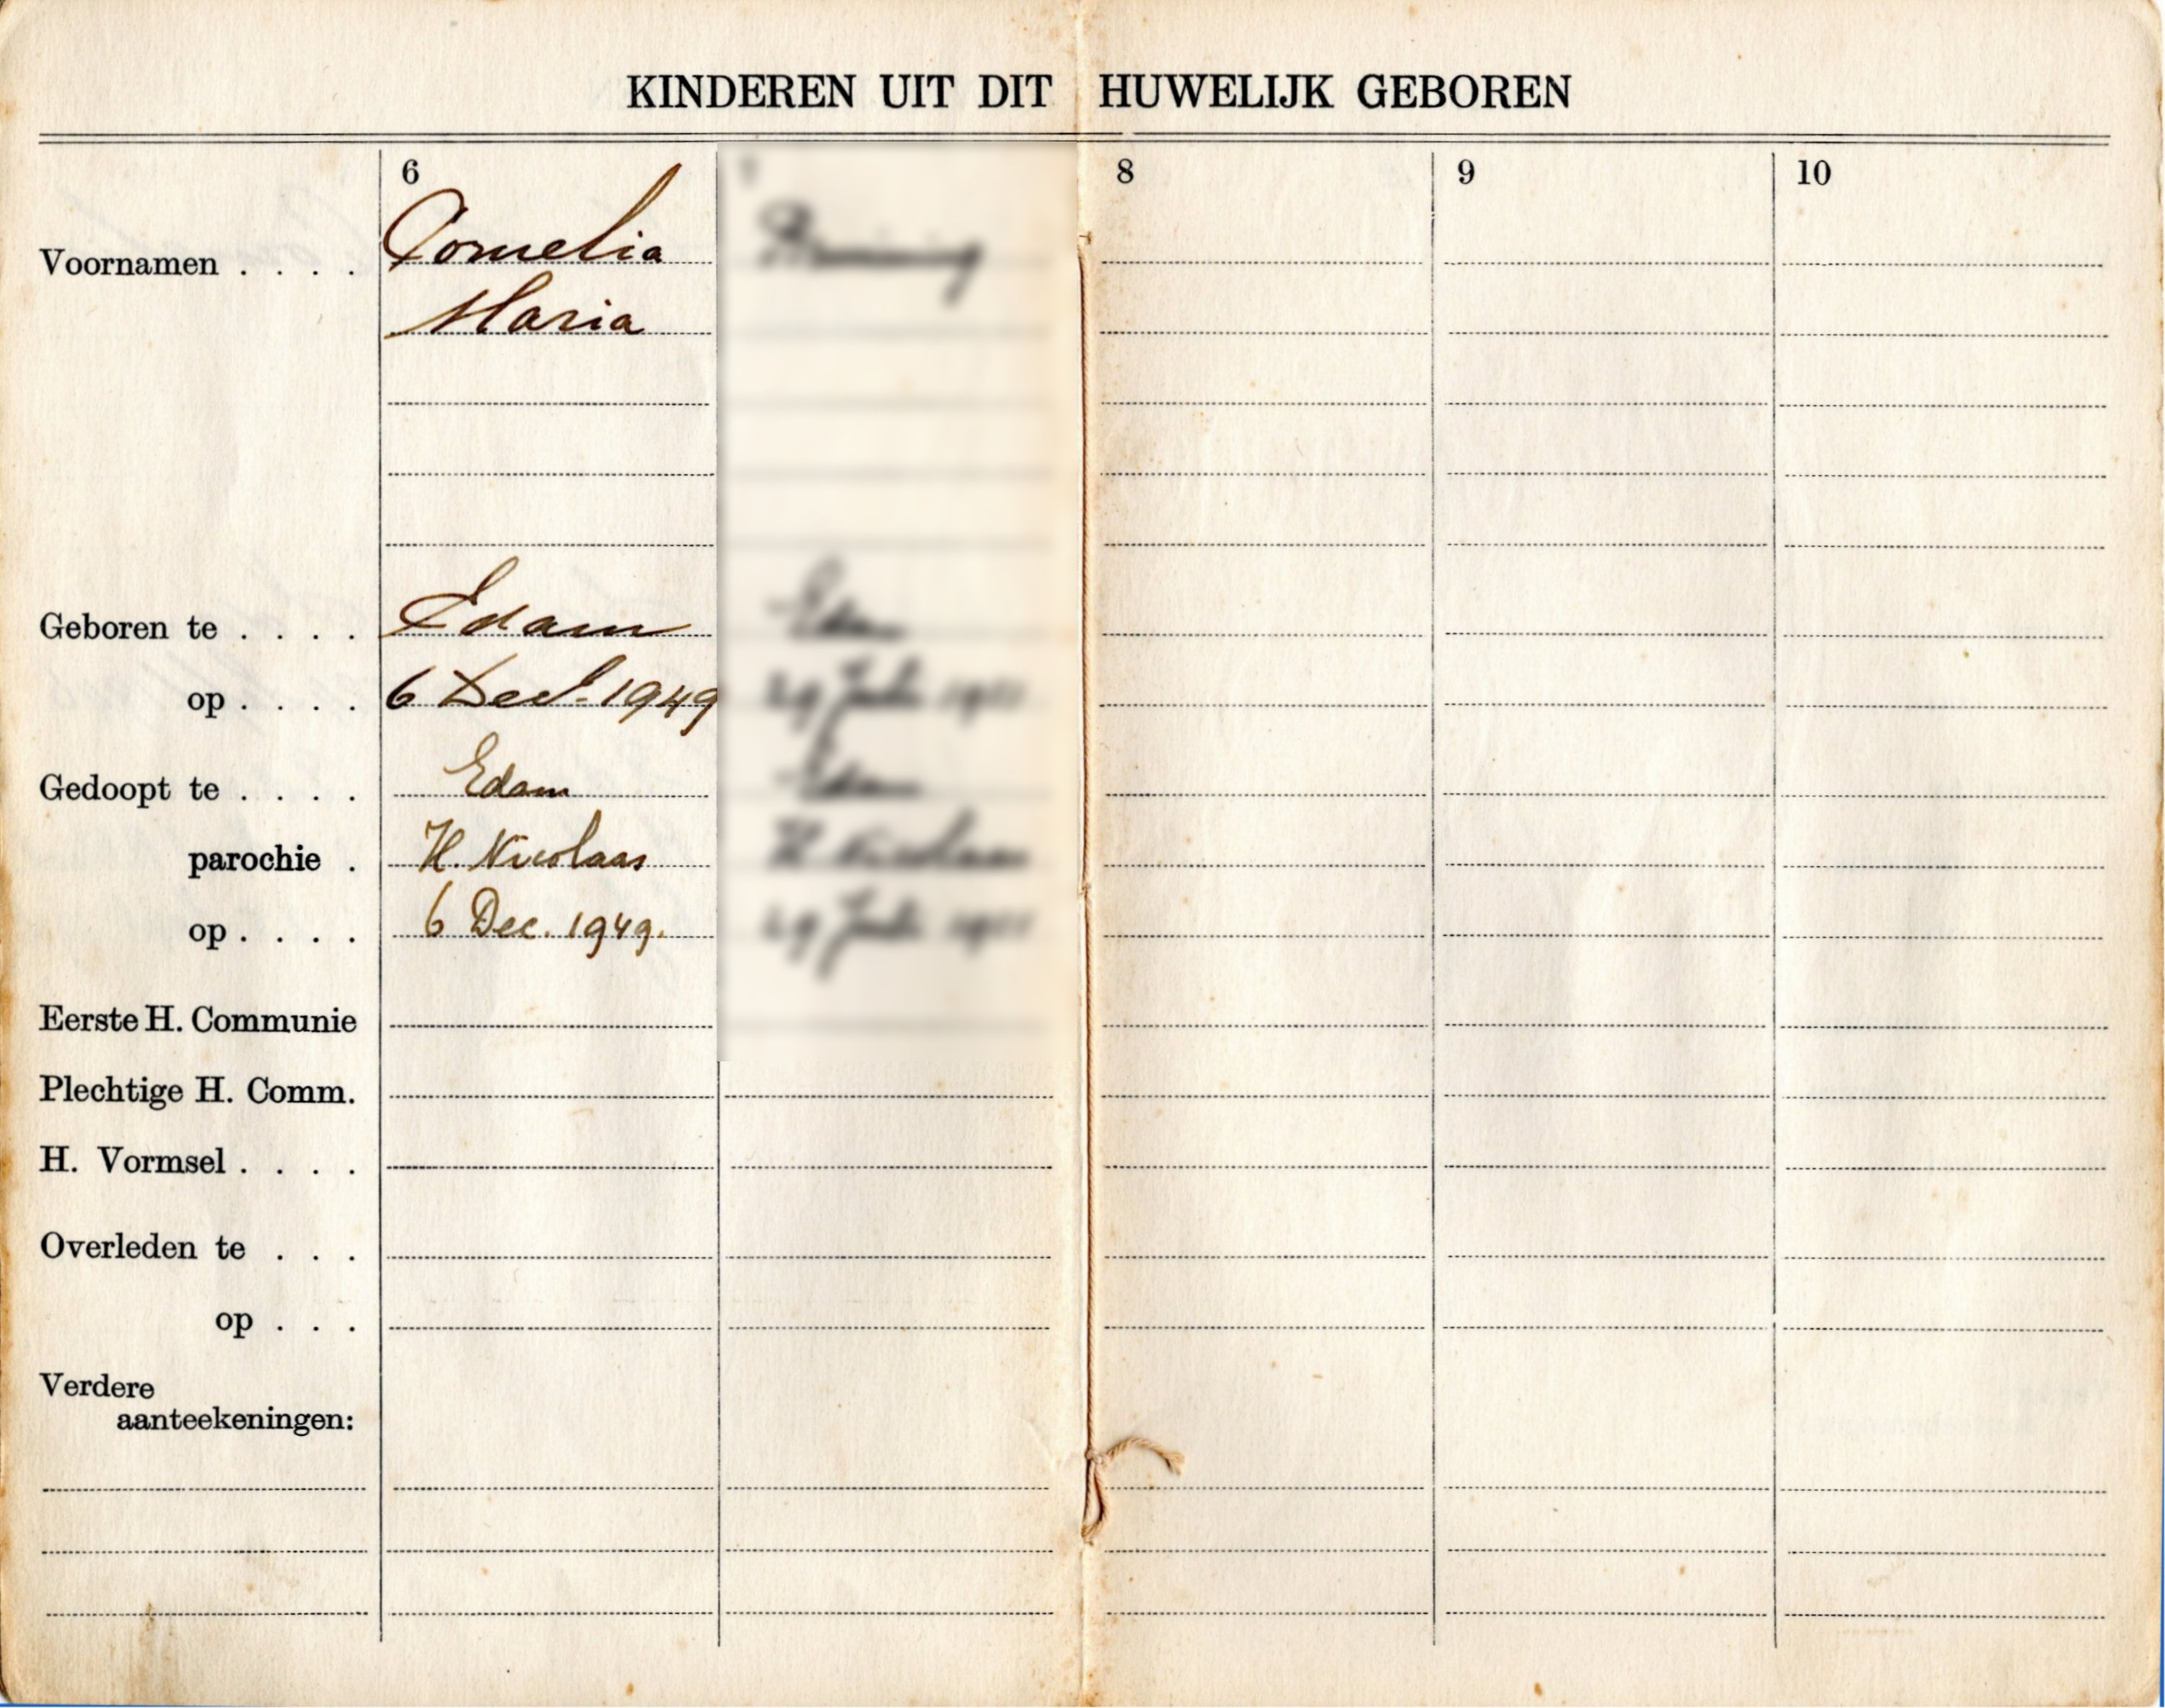 KINDEREN UIT DIT HUWELIJK GEBOREN
6 8 9 10
Voornamen . . . . Cornelia
Maria
Geboren te . . . . Edam
op . . . . 6 Dec. 1949
Gedoopt te . . . . Edam
parochie . H. Nicolaas
op . . . . 6 Dec. 1949.
Eerste H. Communie
Plechtige H. Comm.
H. Vormsel . . . .
Overleden te . . .
op . . .
Verdere
aanteekeningen: